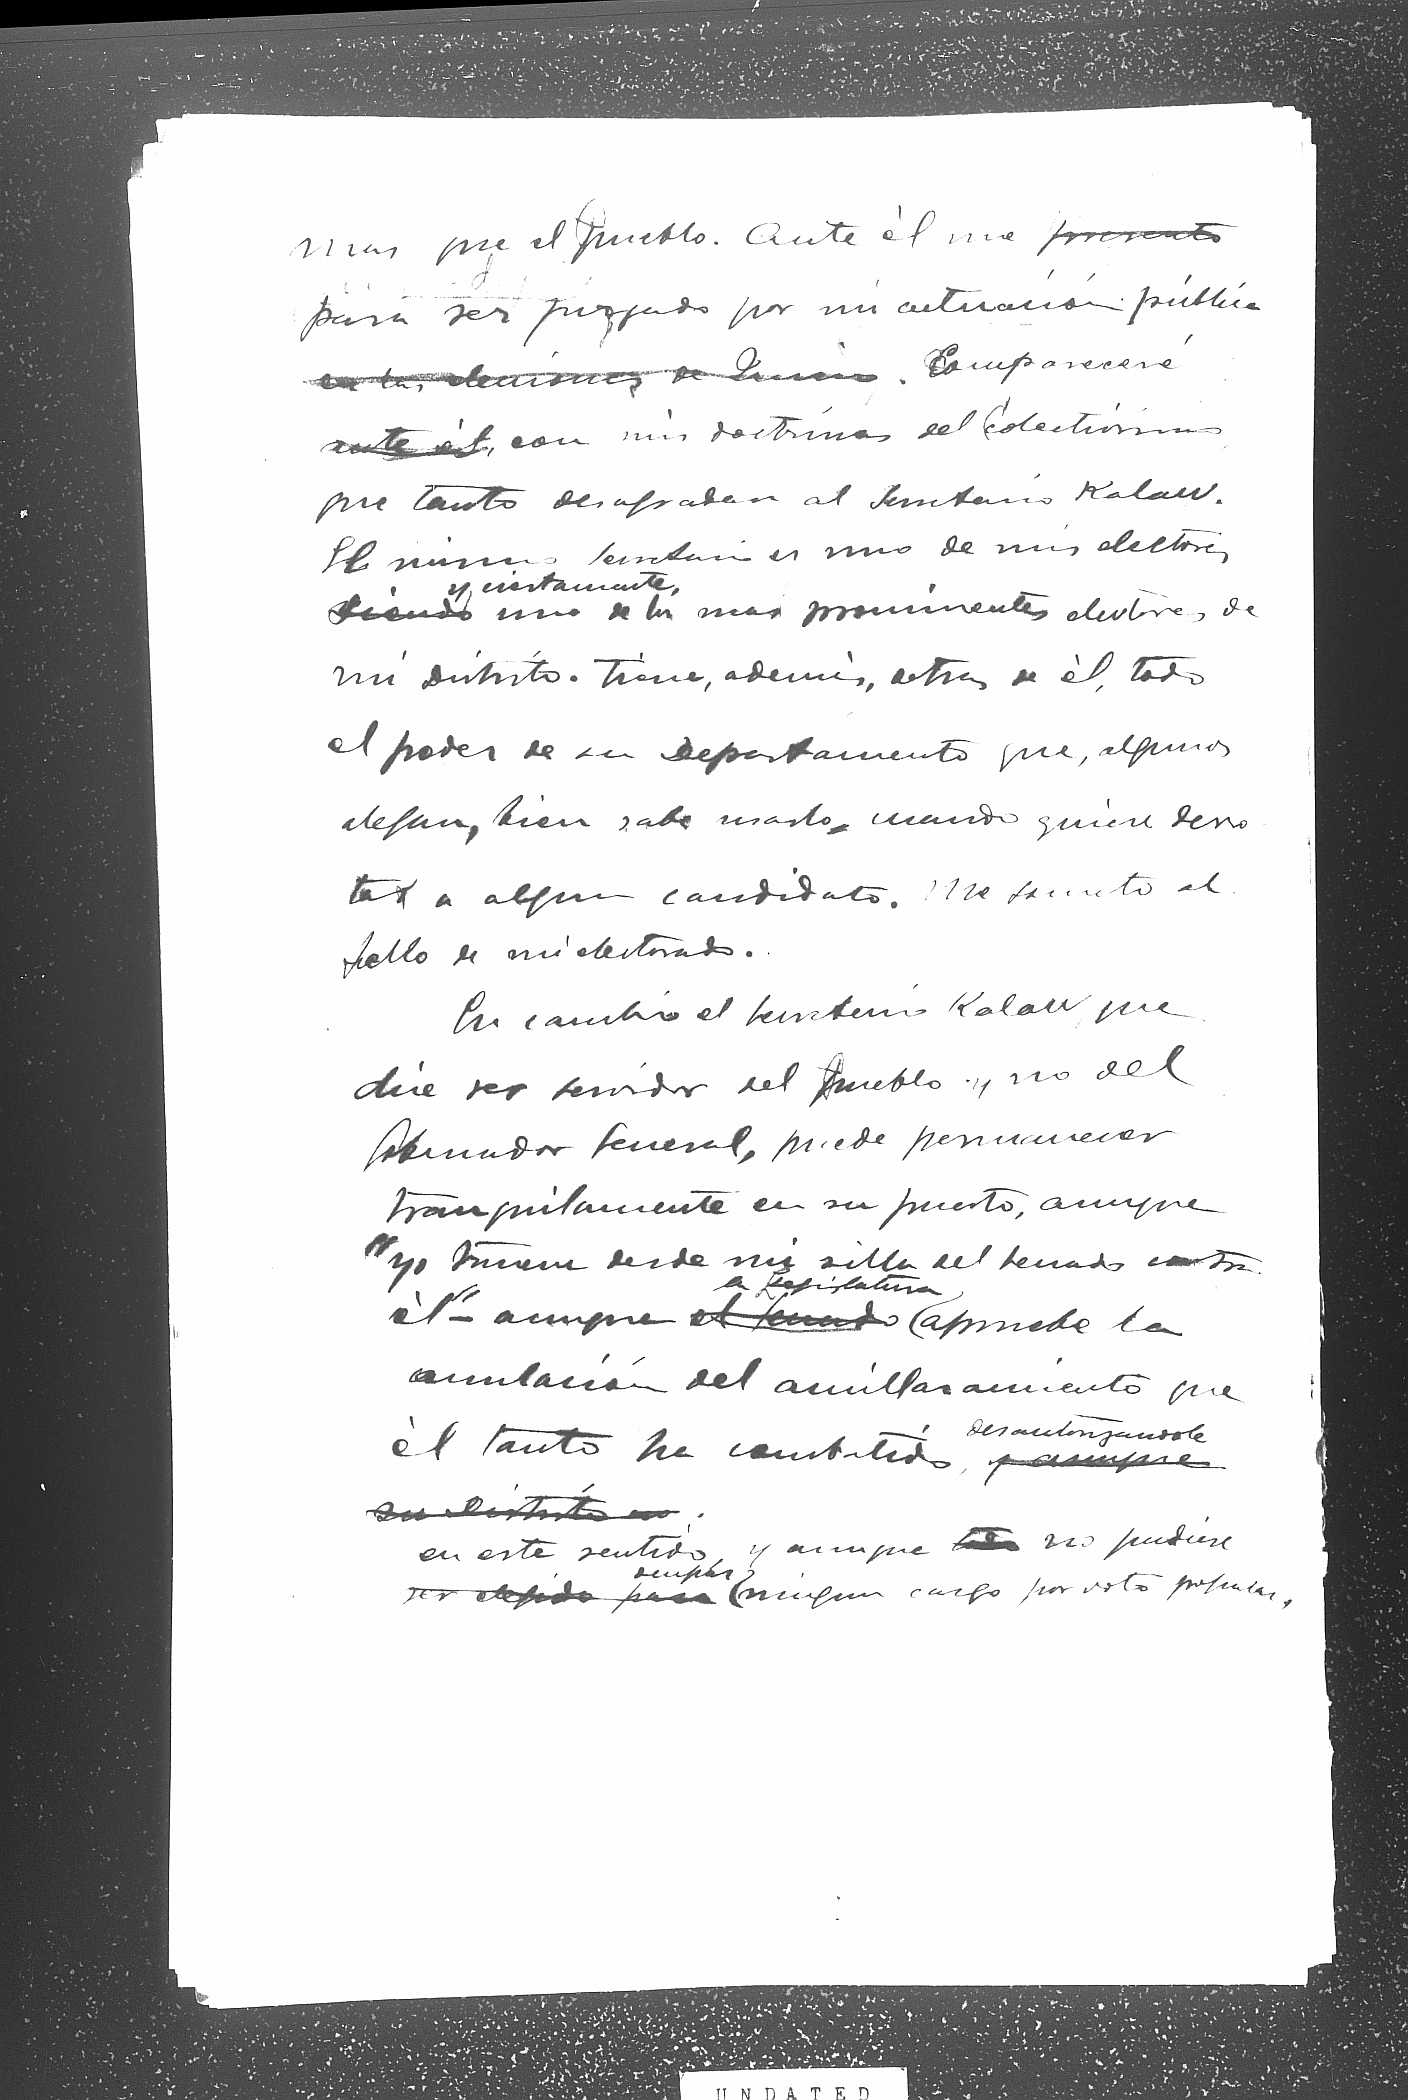 mas que el Pueblo. Ante èl me presento
para ser juzgado por mi actuación pública
en las elecciones de Junio. Compareceré
ante èl, con mis doctrinas del Colectivismo
que tanto desagradan al Secretario Kalaw.
El mismo Secretario es uno de mis electores,
y ciertamente,
siendo uno de los mas prominentes electores de
mi distrito. Tiene, además, detras de èl, todo
el poder de su Departamento que, algunos
alegan, bien sabe usarlo, cuando quiere derro
tar a algun candidato. Me someto al
fallo de mi electorado.
En cambio el Secretario Kalaw que
dice ser servidor del Pueblo y no del
Gobernador General, puede permanecer
tranquilamente en su puesto, aunque
"yo truene desde mi silla del Senado contra
la Legislatura
èl" - aunque el Senado apruebe la
anulación del amillaramiento que
èl tanto ha combatido, y aunque
desautorizandole
su distrito no.
en este sentido, y aunque no pudiese
ocupar
ser elegido para ningun cargo por voto popular,
UNDATED